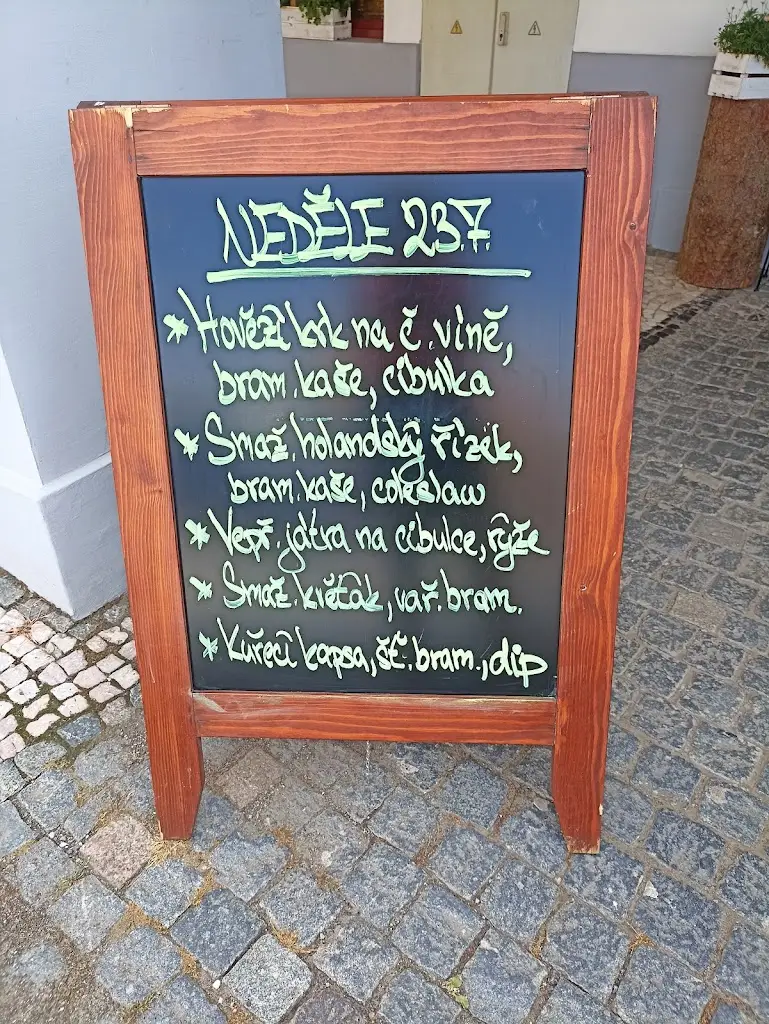 NEDĚLE 23.7.
* Hovězí krk na č. víně,
bram. kaše, cibulka
* Smaž. holandský řízek,
bram. kaše, coleslaw
* Vepř. játra na cibulce, rýže
* Smaž. květák, vař. bram.
* Kuřecí kapsa, šť. bram., dip